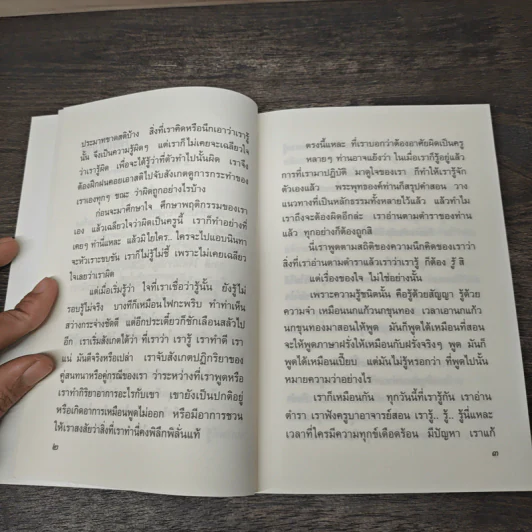 ประมาทขาดสติบ้าง สิ่งที่เราคิดหรือนึกเอาว่าเรารู้
นั้น จึงเป็นความรู้ผิดๆ แต่เราก็ไม่เคยจะเฉลียวใจ
ว่าเรารู้ผิด เพื่อจะได้รู้ว่าที่ตัวทำไปนั้นผิด เราจึง
ต้องฝึกฝนคอยเอาสติไปจับสังเกตดูการกระทำของ
เราเองทุกๆ ขณะ ว่าผิดถูกอย่างไรบ้าง
ก่อนจะมาศึกษาใจ ศึกษาพฤติกรรมของเรา
เอง แล้วเฉลียวใจว่าผิดเป็นครูนี้ เราก็ทำอย่างที่
เคยๆ ทำนี่แหละ แล้วมีใครๆ.. ใครจะไปแอบนินทา
จะหัวเราะขบขัน เราก็ไม่รู้ไม่ชี้ เพราะไม่เคยเฉลียว
ใจเลยว่าเราผิด
แต่เมื่อเริ่มรู้ว่า ใจที่เราเชื่อว่ารู้นั้น ยังรู้ไม่
รอบรู้ไม่จริง บางทีก็เหมือนไฟกะพริบ ทำท่าเห็น
สว่างกระจ่างชัดดี แต่อีกประเดี๋ยวก็ชักเลือนสลัวไป
อีก เราเริ่มสังเกตได้ว่า ที่เราว่า เรารู้ เราทำดี เรา
แน่ มันดีจริงหรือเปล่า เราจับสังเกตปฏิกิริยาของ
คู่สนทนาหรือคู่กรณีของเรา ว่าระหว่างที่เราพูดหรือ
เราทำกิริยาอาการอะไรกับเขา เขายังเป็นปกติอยู่
หรือเกิดอาการเหมือนพูดไม่ออก หรือมีอาการชวน
ให้เราสงสัยว่าสิ่งที่เราทำนี่คงพิลึกพิลั่นแท้
๒
ตรงนี้แหละ ที่เราบอกว่าต้องอาศัยผิดเป็นครู
หลายๆ ท่านอาจแย้งว่า ในเมื่อเราก็รู้อยู่แล้ว
การที่เรามาปฏิบัติ มาดูใจของเรา ก็ทำให้เรารู้จัก
ตัวเองแล้ว พระพุทธองค์ท่านก็สรุปคำสอน วาง
แนวทางที่เป็นหลักธรรมทั้งหลายไว้แล้ว แล้วทำไม
เราถึงจะต้องผิดอีกล่ะ เราอ่านตามตำราของท่าน
แล้ว ทุกอย่างก็ต้องถูกสิ
นี่เราพูดตามสถิติของความนึกคิดของเราว่า
สิ่งที่เราอ่านตามตำราแล้วเราว่าเรารู้ ก็ต้อง รู้ สิ
แต่เรื่องของใจ ไม่ใช่อย่างนั้น
เพราะความรู้ชนิดนั้น คือรู้ด้วยสัญญา รู้ด้วย
ความจำ เหมือนนกแก้วนกขุนทอง เวลาเอานกแก้ว
นกขุนทองมาสอนให้พูด มันก็พูดได้เหมือนที่สอน
จะให้พูดภาษาฝรั่งให้เหมือนกับฝรั่งจริงๆ พูด มันก็
พูดได้เหมือนเปี๊ยบ แต่มันไม่รู้หรอกว่า ที่พูดไปนั้น
หมายความว่าอย่างไร
เราก็เหมือนกัน ทุกวันนี้ที่เรารู้กัน เราอ่าน
ตำรา เราฟังครูบาอาจารย์สอน เรารู้.. รู้.. รู้นี่แหละ
เวลาที่ใครมีความทุกข์เดือดร้อน มีปัญหา เราแก้
๓